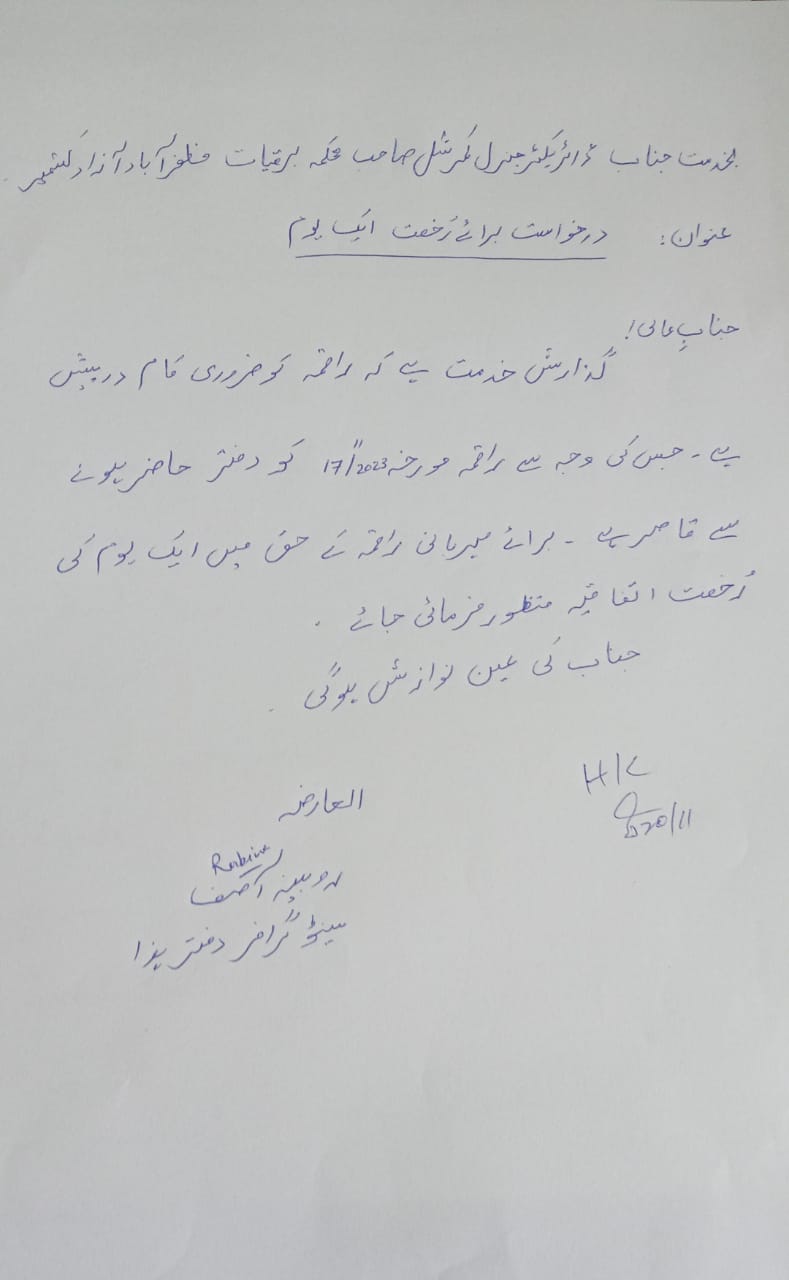 بخدمت جناب ڈائریکٹر جنرل کمرشل صاحب محکمہ برقیات مظفرآباد آزاد کشمیر
عنوان: درخواست برائے رُخصت ایک یوم
جنابِ عالی!
گذارش خدمت ہے کہ راقمہ کو ضروری کام درپیش
ہے۔ جس کی وجہ سے راقمہ مورخہ 17/11/2023 کو دفتر حاضر ہونے
سے قاصر ہے۔ برائے مہربانی راقمہ کے حق میں ایک یوم کی
رُخصت اتفاقیہ منظور فرمائی جائے۔
جناب کی عین نوازش ہوگی۔
H/C
20/11
العارضہ
Rubina
روبینہ آصف
سینوگرافر دفتر ہذا